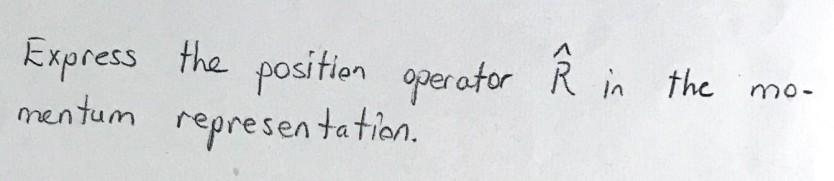 Express the position operator R̂ in the mo-
mentum representation.